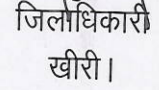 जिलाधिकारी
खीरी।